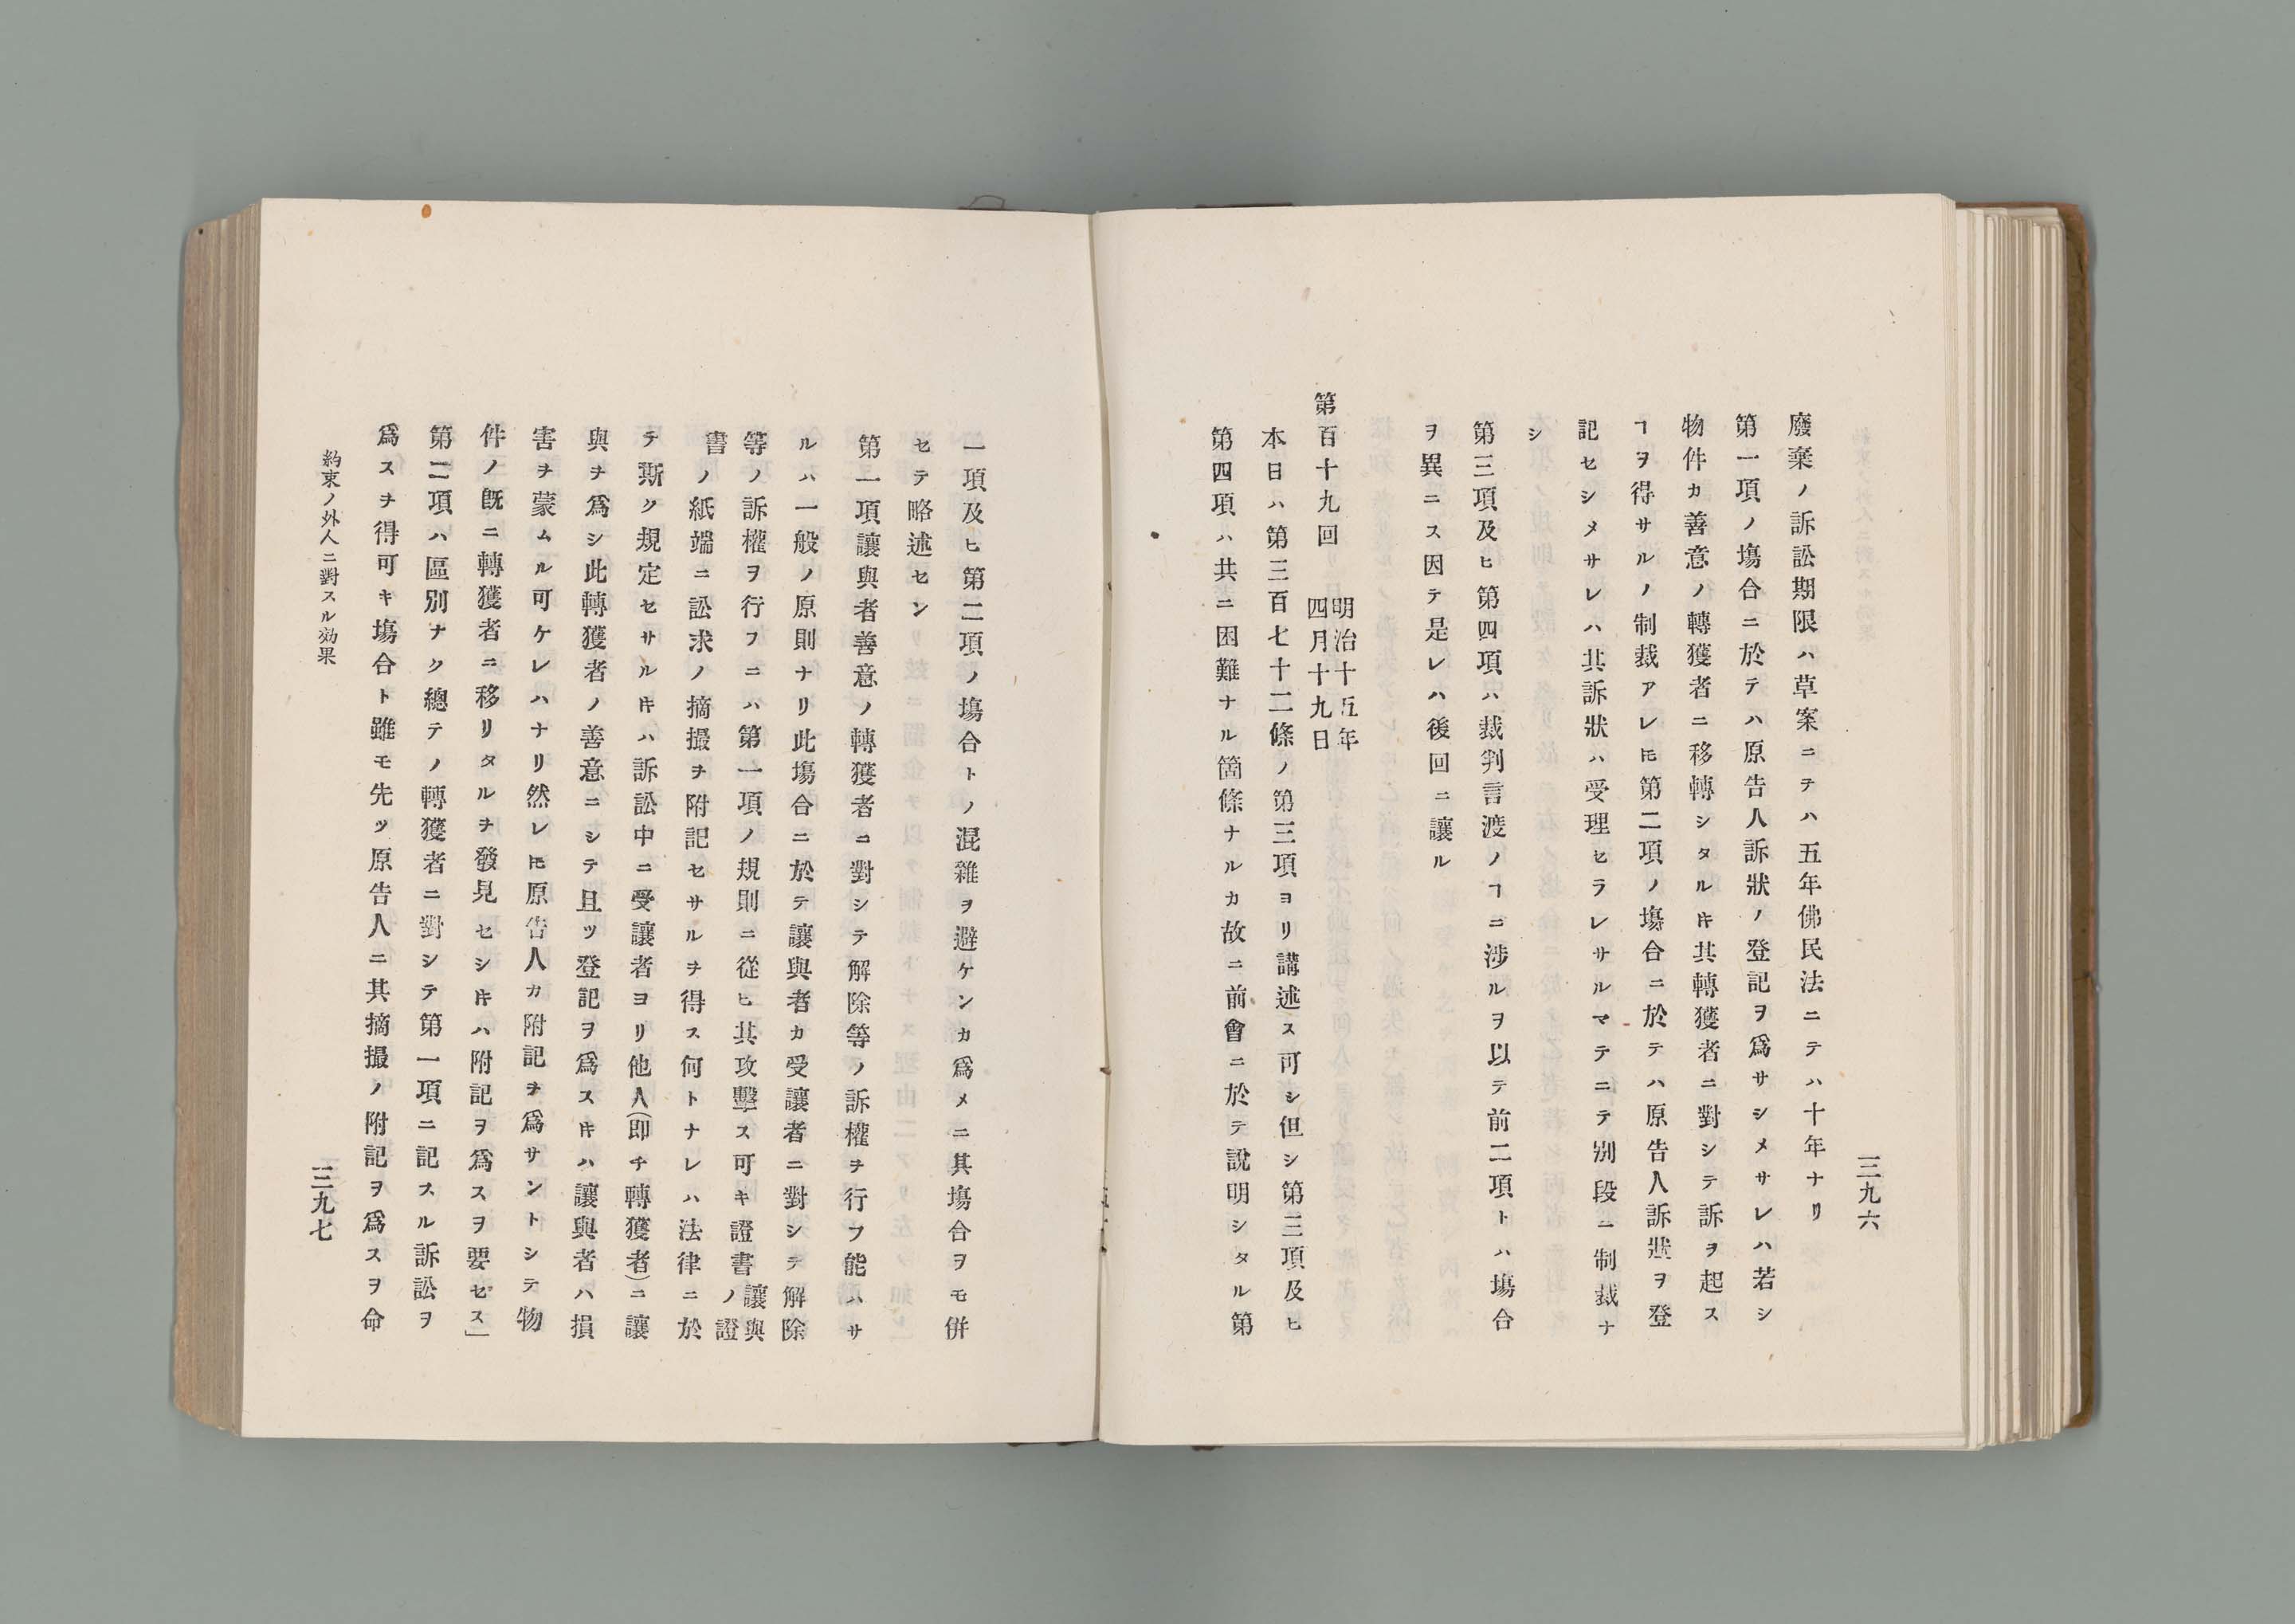 三九六
廢棄ノ訴訟期限ハ草案ニテハ五年佛民法ニテハ十年ナリ
第一項ノ塲合ニ於テハ原告人訴狀ノ登記ヲ爲サシメサレハ若シ
物件カ善意ノ轉獲者ニ移轉シタルキ其轉獲者ニ對シテ訴ヲ起ス
ヿヲ得サルノ制裁アレ𪜈第二項ノ塲合ニ於テハ原告人訴狀ヲ登
記セシメサレハ其訴狀ハ受理セラレサルマテニテ別段ニ制裁ナ
シ
第三項及ヒ第四項ハ裁判言渡ノヿニ涉ルヲ以テ前二項トハ塲合
ヲ異ニス因テ是レハ後回ニ讓ル
第百十九回 明治十五年
四月十九日
本日ハ第三百七十二條ノ第三項ヨリ講述ス可シ但シ第三項及ヒ
第四項ハ共ニ困難ナル箇條ナルカ故ニ前會ニ於テ說明シタル第
一項及ヒ第二項ノ塲合トノ混雜ヲ避ケンカ爲メニ其塲合ヲモ併
セテ略述セン
第一項讓與者善意ノ轉獲者ニ對シテ解除等ノ訴權ヲ行フ能ハサ
ルハ一般ノ原則ナリ此塲合ニ於テ讓與者カ受讓者ニ對シテ解除
等ノ訴權ヲ行フニハ第一項ノ規則ニ從ヒ其攻擊ス可キ證書讓與
ノ證
書ノ紙端ニ訟求ノ摘撮ヲ附記セサルヲ得ス何トナレハ法律ニ於
テ斯ク規定セサルキハ訴訟中ニ受讓者ヨリ他人(即チ轉獲者)ニ讓
與ヲ爲シ此轉獲者ノ善意ニシテ且ツ登記ヲ爲スキハ讓與者ハ損
害ヲ蒙ムル可ケレハナリ然レ𪜈原告人カ附記ヲ爲サントシテ物
件ノ旣ニ轉獲者ニ移リタルヲ發見セシキハ附記ヲ爲スヲ要セス」
第二項ハ區別ナク總テノ轉獲者ニ對シテ第一項ニ記スル訴訟ヲ
爲スヲ得可キ塲合ト雖モ先ツ原告人ニ其摘撮ノ附記ヲ爲スヲ命
約束ノ外人ニ對スル効果
三九七